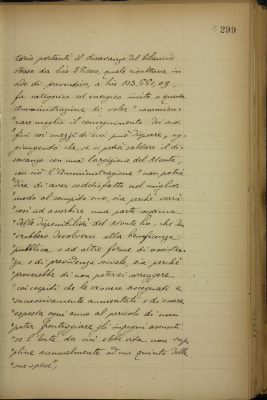 299
torio portanti il disavanzo del bilancio
stesso da lire 56.000, quale risultava in
sede di preventivo, a lire 103,661,09,
fa categorico ed energico invito a questa
Amministrazione di voler "considerare
meglio il conseguimento dei suoi
fini coi mezzi di cui può disporre, ag-
giungendo che, se si potrà saldare il di-
savanzo con una largizione del Monte,
con ciò l'Amministrazione "non potrà
dire di aver soddisfatto nel miglior
modo al compito suo, sia perchè verrà
così ad assorbire una parte
"delle disponibilità del Monte che, do-
vrebbero devolversi alla beneficenza
pubblica o ad altre forme di assisten-
za o di previdenza sociale, sia perchè
proverebbe di non potersi sorreggere
"coi cespiti che le vennero assegnati e
successivamente aumentati e di essere
"esposta ogni anno al pericolo di non
poter fronteggiare gli impegni assunti
"se l'Ente da cui ebbe vita non sup-
plisce annualmente ad un quinto delle
"sue spese",